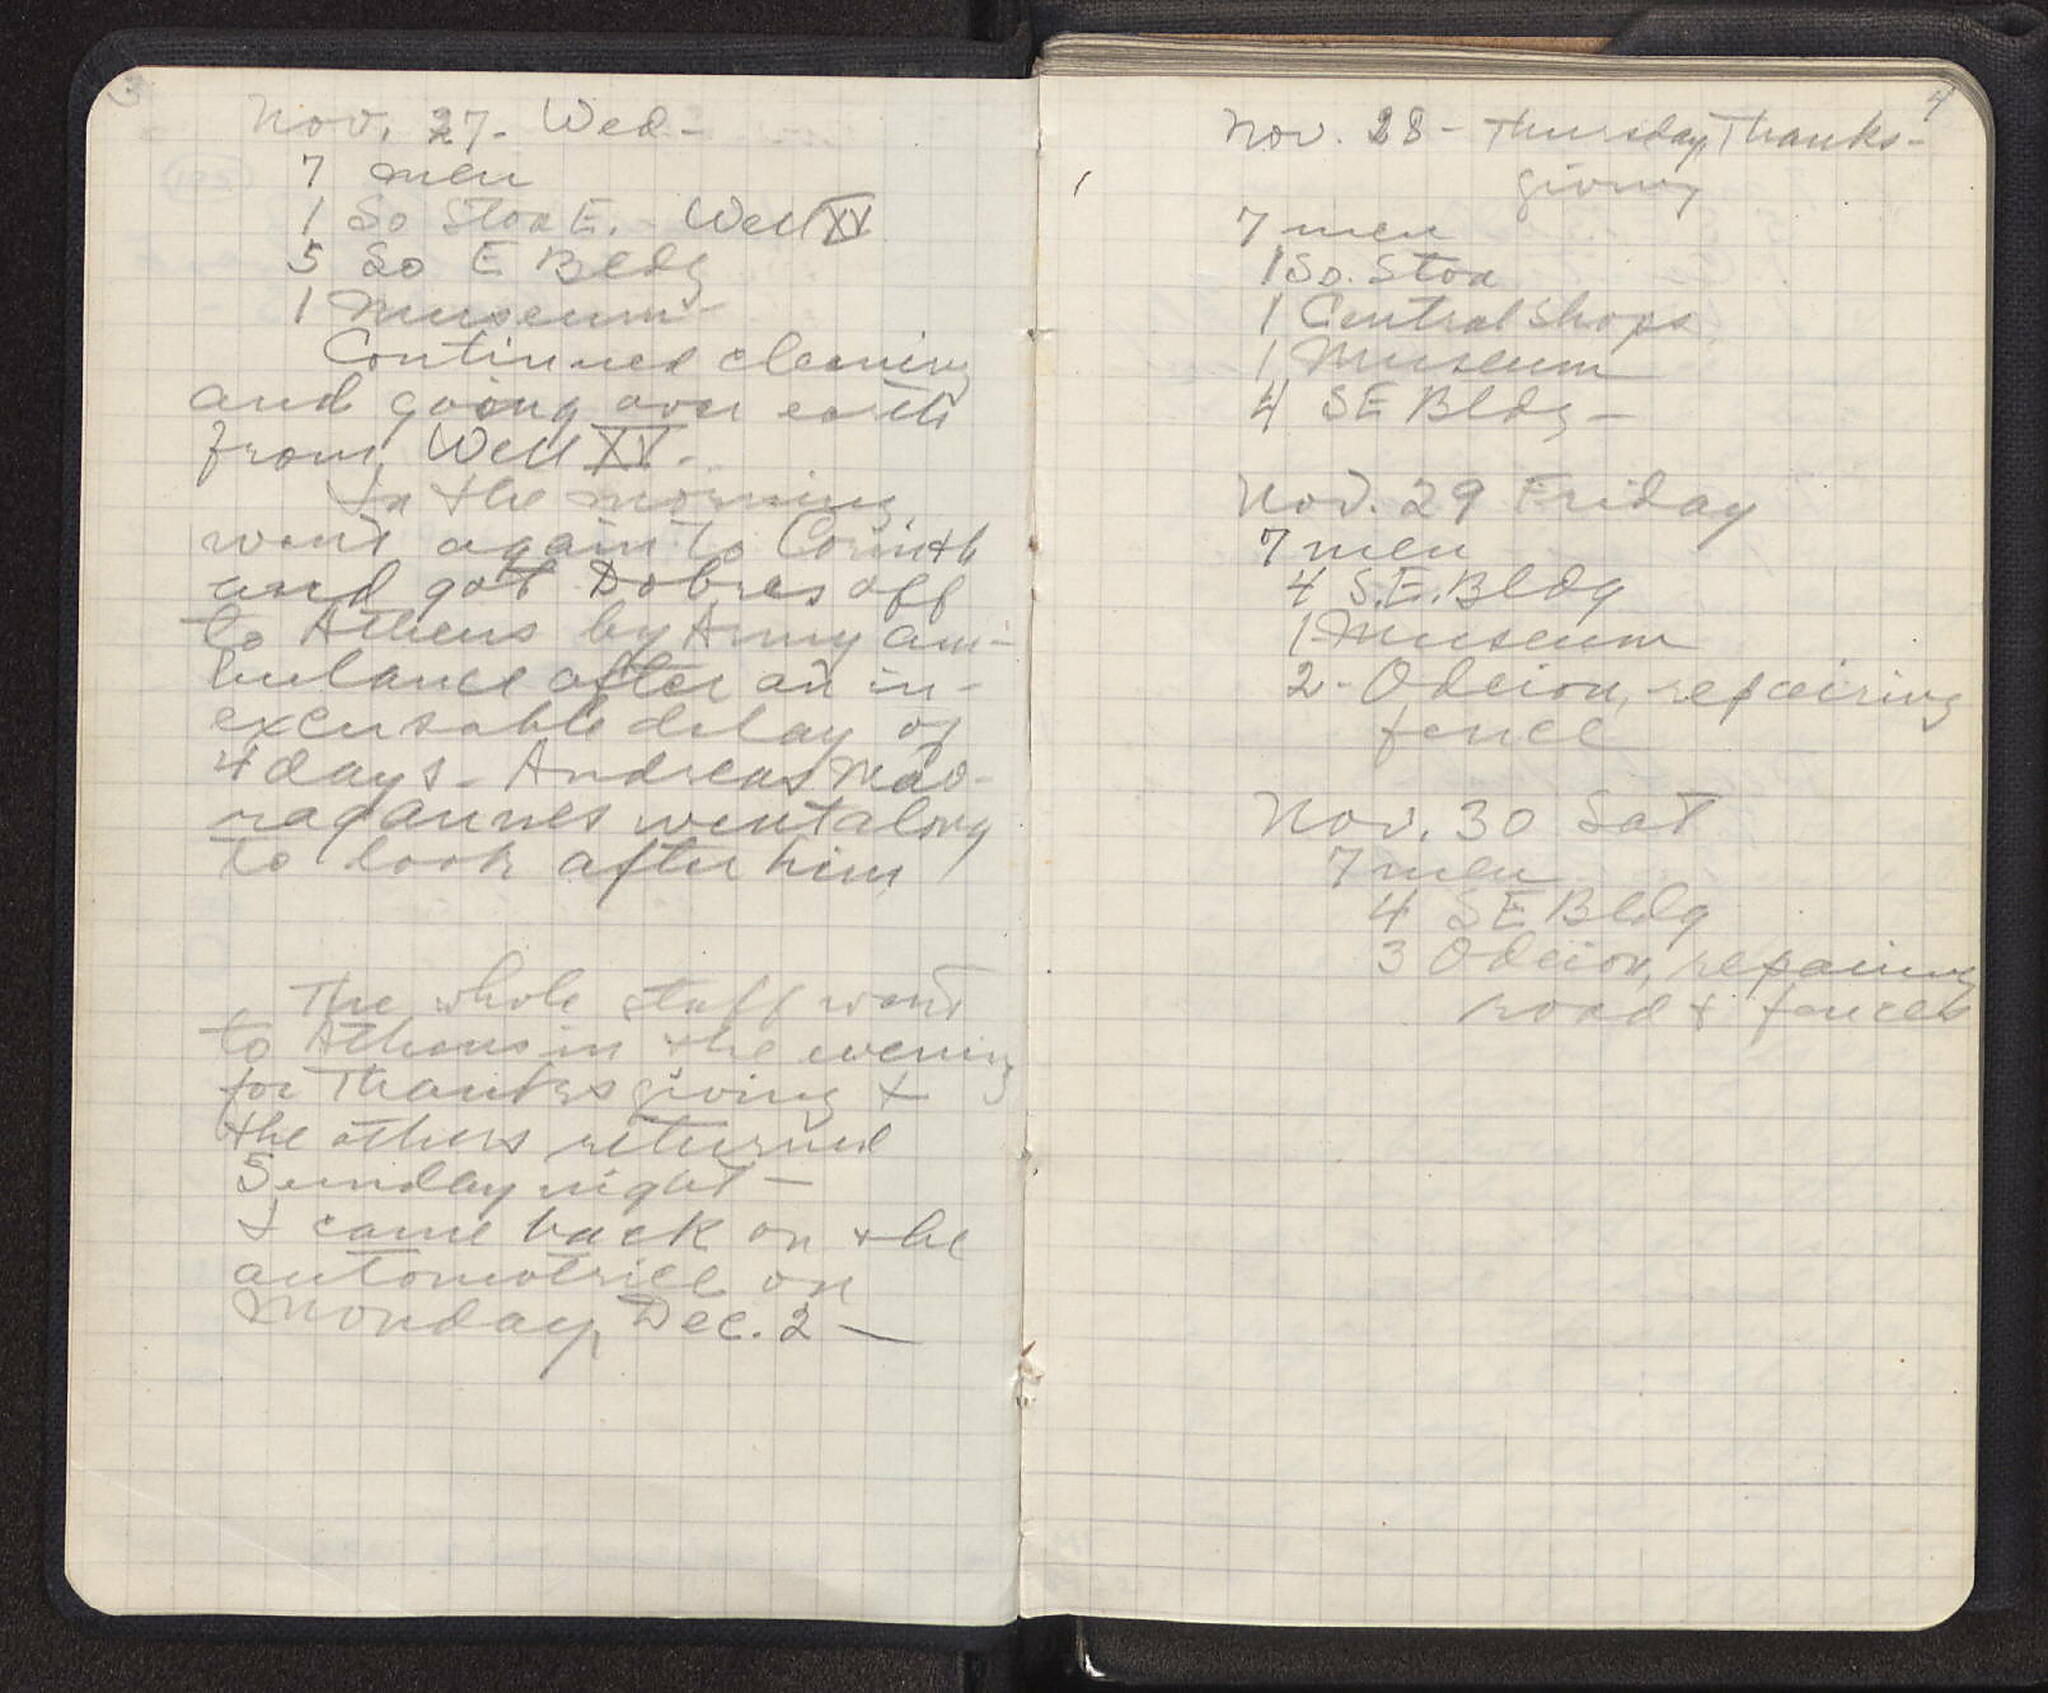 3
Nov. 27. Wed-
7 men
1 So Stoa E. Well XV
5 So E Bldg
1 Museum-
Continued cleaning
and going over earth
from Well XV.
In the morning
went again to Corinth
and got Dobres off
to Athens by Army am-
bulance after an in-
excusable delay of
4 days- Andreas Mav-
ragannes went along
to look after him
The whole staff went
to Athens in the evening
for Thanksgiving &
the others returned
Sunday night-
I came back on the
automotrice on
Monday, Dec. 2-
4
Nov. 28- Thursday, Thanks-
giving
7 men
1 So. Stoa
1 Central Shops
1 Museum
4 SE Bldg-
Nov. 29 Friday
7 men
4 S.E. Bldg
1 Museum
2- Odeion, repairing
fence
Nov. 30 Sat
7 men
4 SE Bldg
3 Odeion, repairing
road & fences